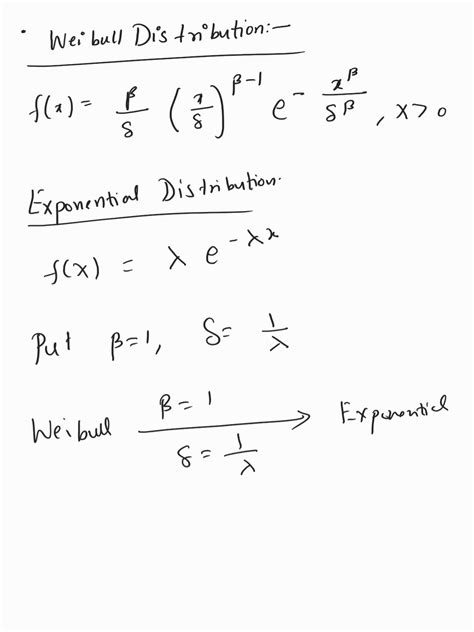 · Weibull Distribution:—
f(x) = β/δ (x/δ)^(β-1) e^(- x^β/δ^β) , x>0
Exponential Distribution:
f(x) = λ e^(-λx)
Put β=1, δ= 1/λ
Weibull β=1 δ=1/λ → Exponential